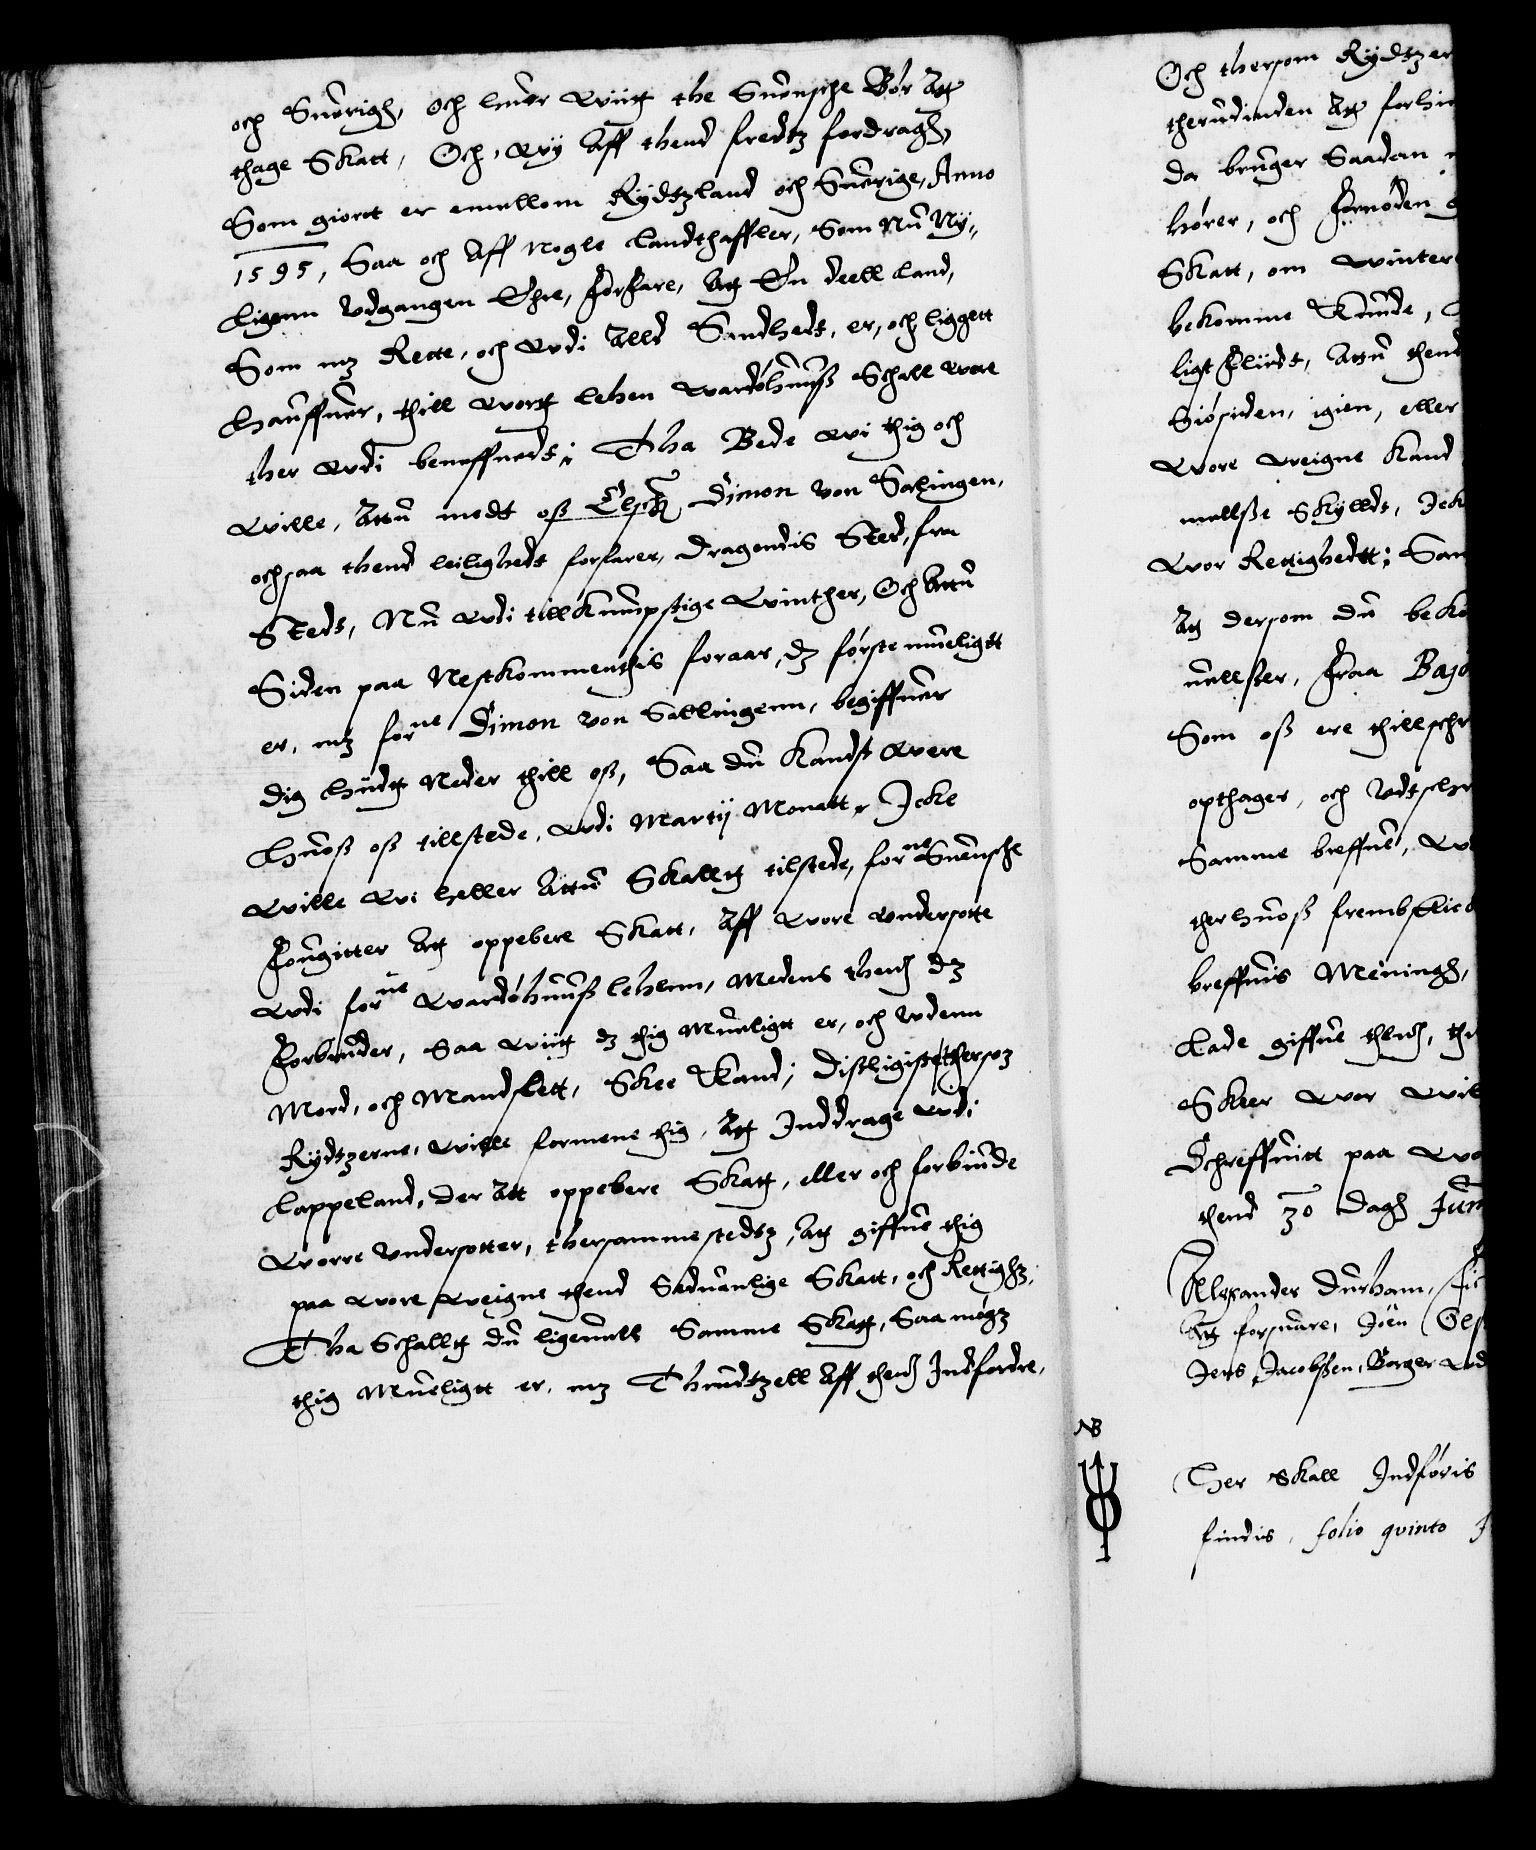 och Suerigh, och huor wiitt the Suensche Bør Att
thage Skatt, Och, wy Aff thend fredtz fordragh,
Som giortt er emellom Rydtzland och Suerige, Anno
1595, Saa och Aff Nogle Landthaffler, Som Nu Ny,,
ligenn Udgangen Ehre, forfare, Att En deell Land,
Som mz Rette, och wdi Alld Sandhedt, er, och liggett
haffuer, thill wortt Lehen Wardøhuuss Schall were
ther wdi beneffnedt; Tha Bede wi thig och
wille, Attu medt oss Elschl: Simon von Salingen,
och saa thend leilighedt forfarer, dragendis Sted, fra
Stedt, Nu wdi tillkumpstige Winther, Och Attu
Siden paa Nestkommendis foraar, dz første mueligtt
er, mz forne Simon von Sallingenn, begiffuer
dig hiidt Neder thill oss, Saa du Kandst were
Huoss oss tillstede, wdi Martij Monatt, Icke
wille wi heller Attu Skalltt tilstede, forne Suensche
fougitter Att oppebere Skatt, Aff wore Undersotte
wdi forne Wardøhuuss Lehenn, Medens thend dz
forbiuder, Saa wiitt dz thig Mueligtt er, och Udenn
Mord, och Mandslett, Skee Kand; Disligiste thersom
Rydtzerne, wille formene thig, Att Inddrage wdi
Lappeland, der Att oppebere Skatt, eller och forbiude
Worre Undersotter, thersammestedtz, Att giffue thig
paa wore weigne thend Seduanlige Skatt, och Rettighz,
Tha Schalltt du ligeuell Samme Skatt, Saa megz
thig Mueligtt er, mz Thrudtzell Aff thend Indfordre,
Och thersom Rydtzer
therudinden Att
da bruger Saadan
hører, och fornøden
Skatt, om winter
bekomme Kunde,
ligt fliidt, Attu thend
Siøsiden, igien, eller
Wore weigne Kand
mellsse Skylldt, Ick
Wor Rettighedtt; Sam
Att dersom du beko
fraa
Som oss ere thillschr
opthager, och
Samme breffue,
ther huoss
breffuis Meningh,
Lade giffue thend,
Skeer wor will
Schreffuitt paa
thend 30 dagh Jun
Alexander Durham,
Att forsuare, Joen
Jens Jacobssen, Borger
NB
Her Skall Indføris
findis, folio quinto